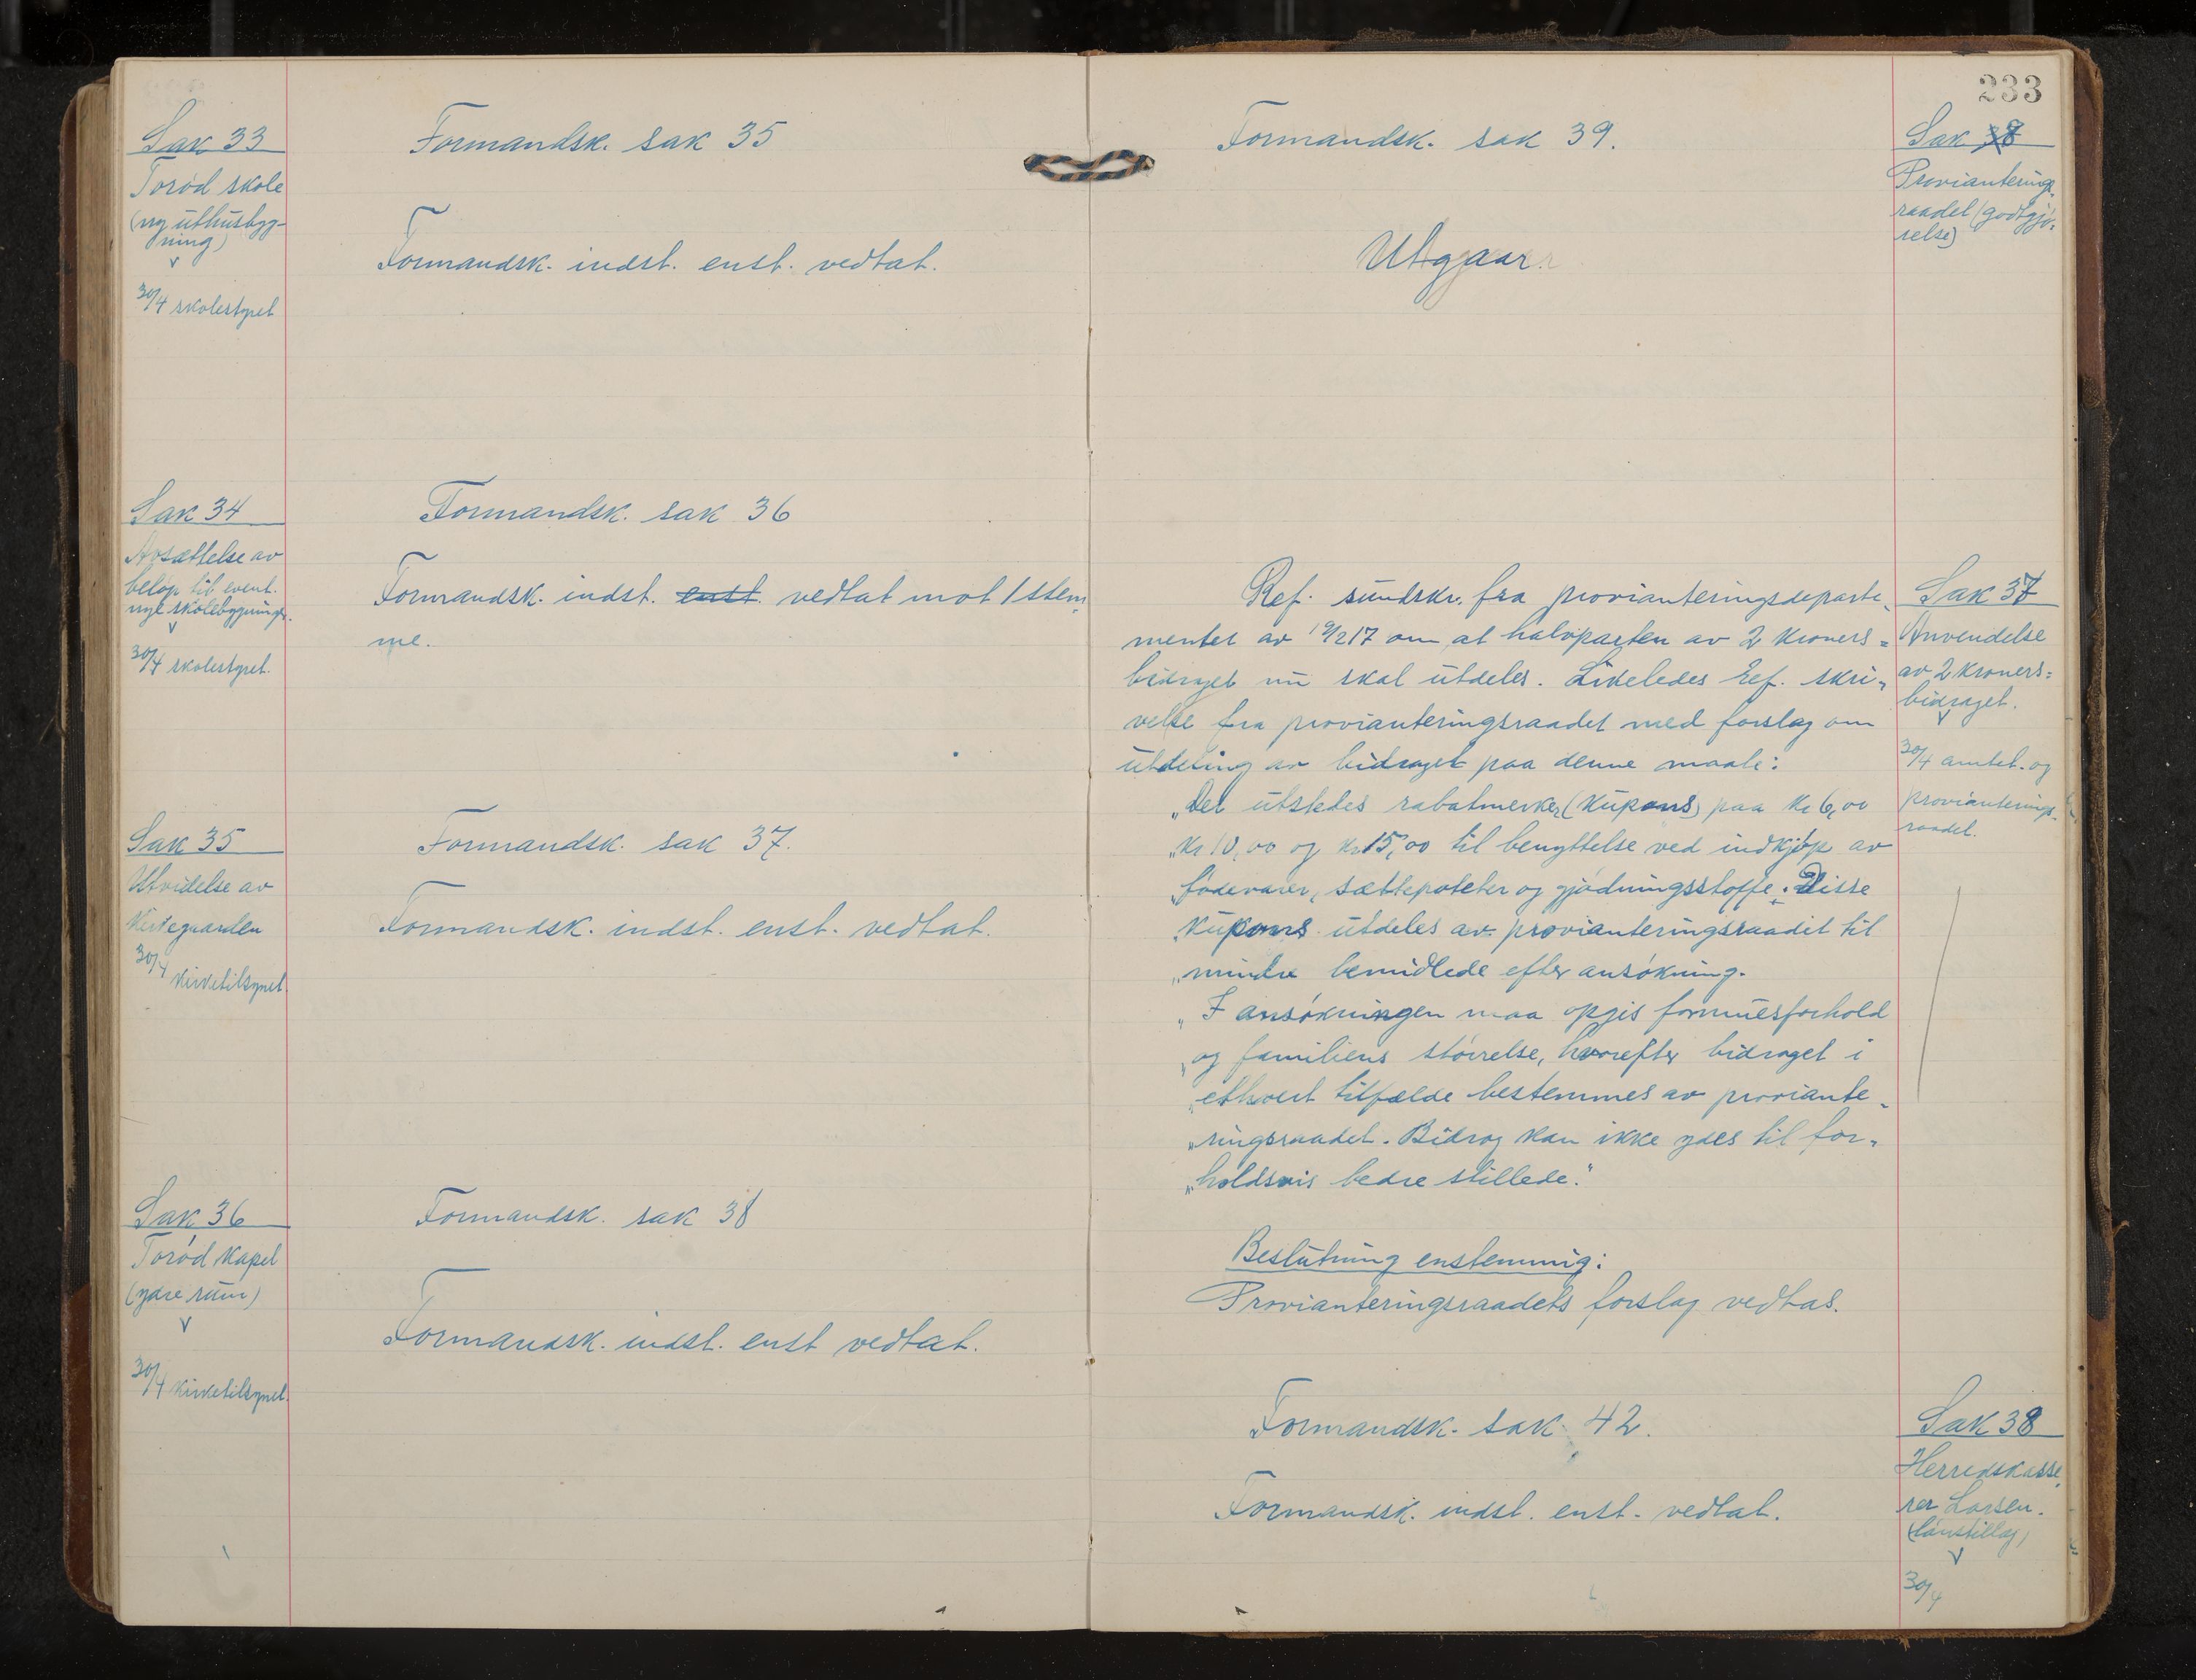 Sak 33
Toröd skole
(ny uthusbyg-
ning)
30/4 skolestyret
Formandsk. sak 35
Formandsk. indst. enst. vedtat.
Sak 34
Avsættelse av
beløp til event.
nye skolebygninger.
30/4 skolestyret.
Formandsk. sak 36
Formandsk. indst. enst. vedtat mot 1 stem-
me.
Sak 35
Utvidelse av
Kirkegaarden
30/4 kirketilsynet.
Formandsk. sak 37.
Formandsk. indst. enst. vedtat.
Sak 36
Toröd Kapel
(ydre rum)
30/4 kirketilsynet.
Formandsk. sak 38
Formandsk. indst. enst vedtat.
233
Formandsk. sak 39.
Utgaar.
Sak 38
Provianterings-
raadet (godtgjö-
relse)
Ref. rundskr. fra provianteringsdeparte-
mentet av 19/2 17 om at halvparten av 2 kroners=
bidraget nu skal utdeles. Likeledes ref. skri-
velse fra provianteringsraadet med forslag om
utdeling av bidraget paa denne maate:
„Det utstedes rabatmerker (Kupons) paa kr 6,00
„kr 10,00 og kr 15,00 til benyttelse ved indkjöp av
„födevarer, sættepoteter og gjödningsstoffe. Disse
„Kupons utdeles av provianteringsraadet til
„mindre bemidlede efter ansökning.
„I ansökningen maa opgis formuesforhold
„og familiens störrelse, hvorefter bidraget i
„ethvert tilfælde bestemmes av proviante-
„ringsraadet. Bidrag kan ikke ydes til for-
„holdsvis bedre stillede."
Beslutning enstemmig:
Provianteringsraadets forslag vedtas.
Sak 37
Anvendelse
av 2 kroners=
bidraget.
30/4 amtet. og
provianterings-
raadet.
Formandsk. sak 42.
Formandsk. indst. enst. vedtat.
Sak 38
Herredskasse-
rer Larsen.
(lönstillæg)
30/4